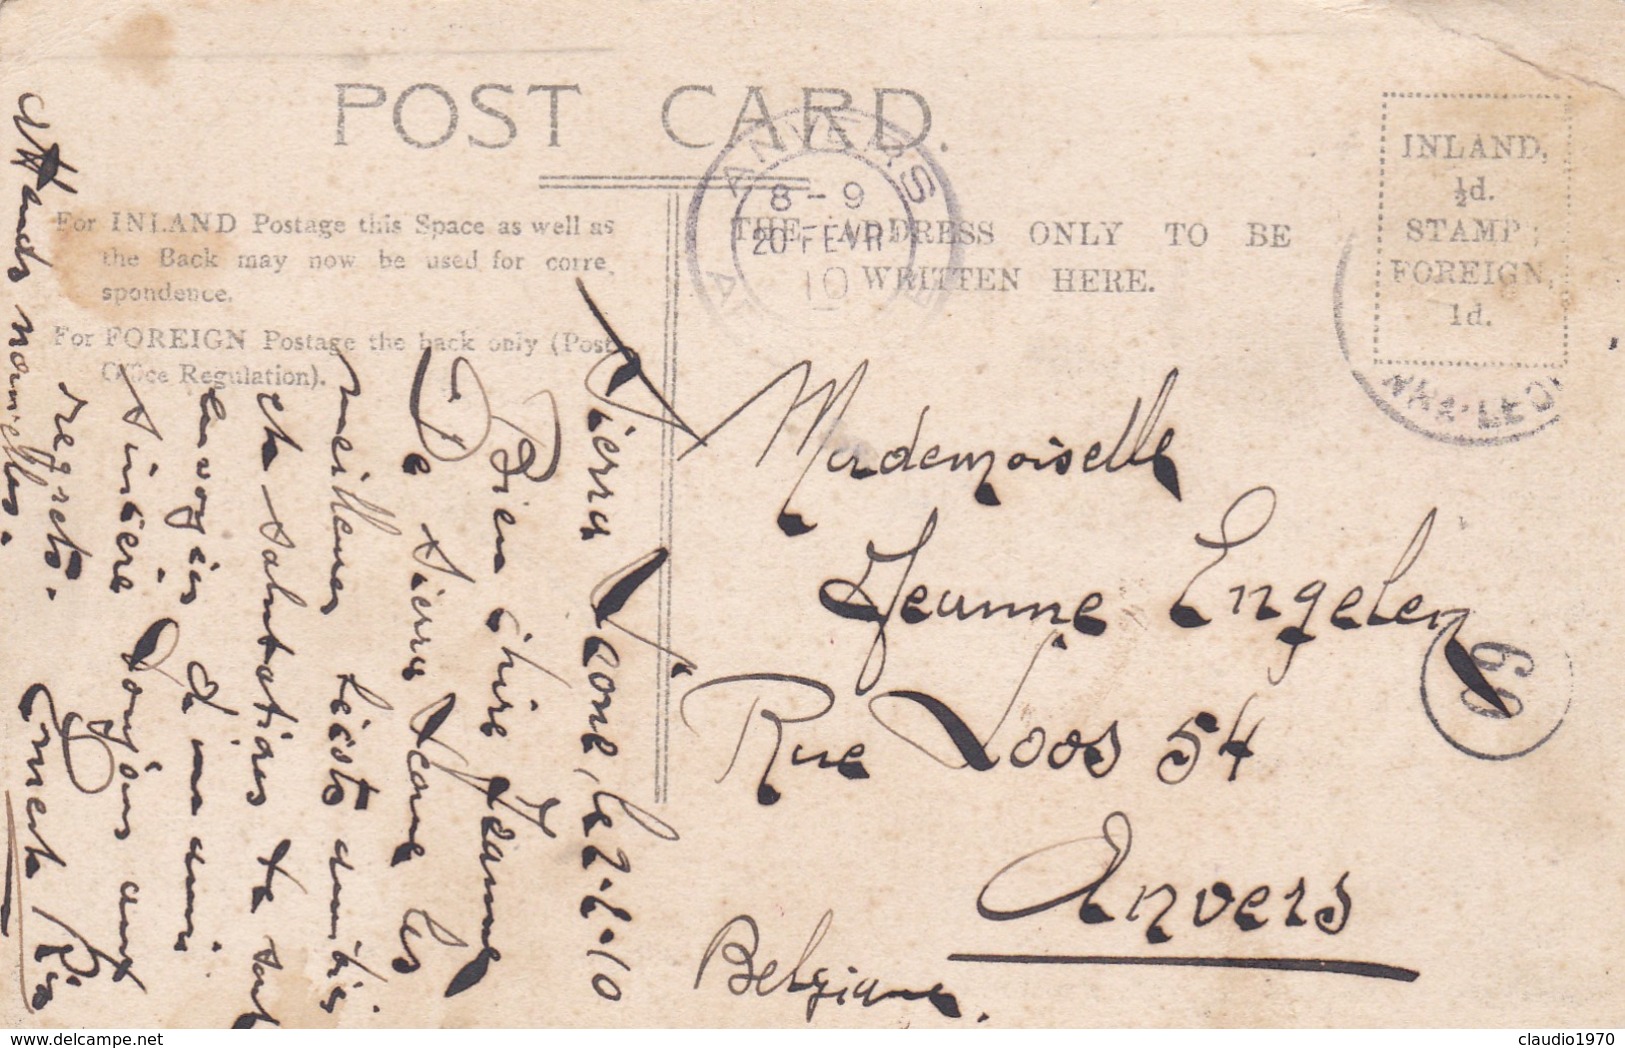 POST CARD.
For INLAND Postage this Space as well as
the Back may now be used for corre
spondence.
For FOREIGN Postage the back only (Post
Office Regulation).
THE ADDRESS ONLY TO BE
WRITTEN HERE.
INLAND,
½d.
STAMP;
FOREIGN,
1d.
ANVERS
8-9
20 FEVR
10
RRA-LEO
69
Mademoiselle
Jeanne Engelen
Rue Loos 54
Anvers
Belgique.
Sierra Leone, le 2-2-10
Bien chère Jeanne
De Sierra Leone les
meilleures
salutations te sont
envoyées d'un ami
sincère
regrets.
Attends nouvelles.
claudio1970